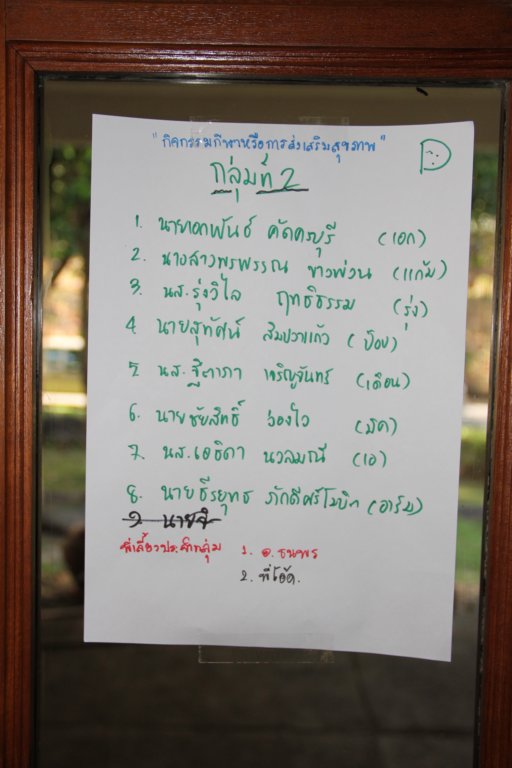 "กิจกรรมกีฬาหรือการส่งเสริมสุขภาพ"
D
กลุ่มที่ 2
1. นายเอกพันธ์ คัดครบุรี (เอก)
2. นางสาวพรพรรณ ขาวพ่วน (แก้ม)
3. นส.รุ่งวิไล ฤทธิธรรม (รุ่ง)
4. นายสุทัศน์ (ป๋อง)
5. นส.ฐิตาภา เจริญจันทร์ (เดือน)
6. นายชัยสิทธิ์ ว่องไว (มิค)
7. นส.เอธิดา นวลมณี (เอ)
8. นายธีรยุทธ (อาร์ม)
9. นายจิ
พี่เลี้ยงประจำกลุ่ม 1. อ.ธนพร
2. พี่โอ๊ต.